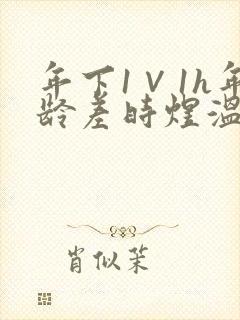 年下1V1h年
龄差时煜温
肖似茉